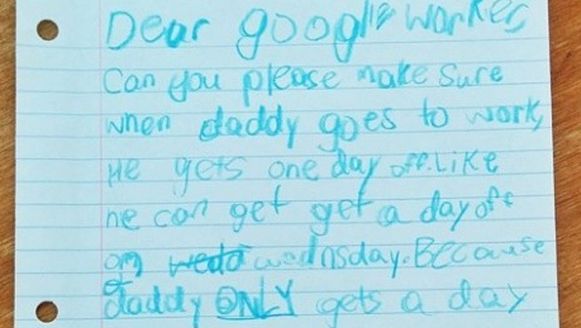 Dear google worker
Can you please make sure
when daddy goes to work,
He gets one day off. Like
he can get get a day off
on wednsday. Because
daddy ONLY gets a day